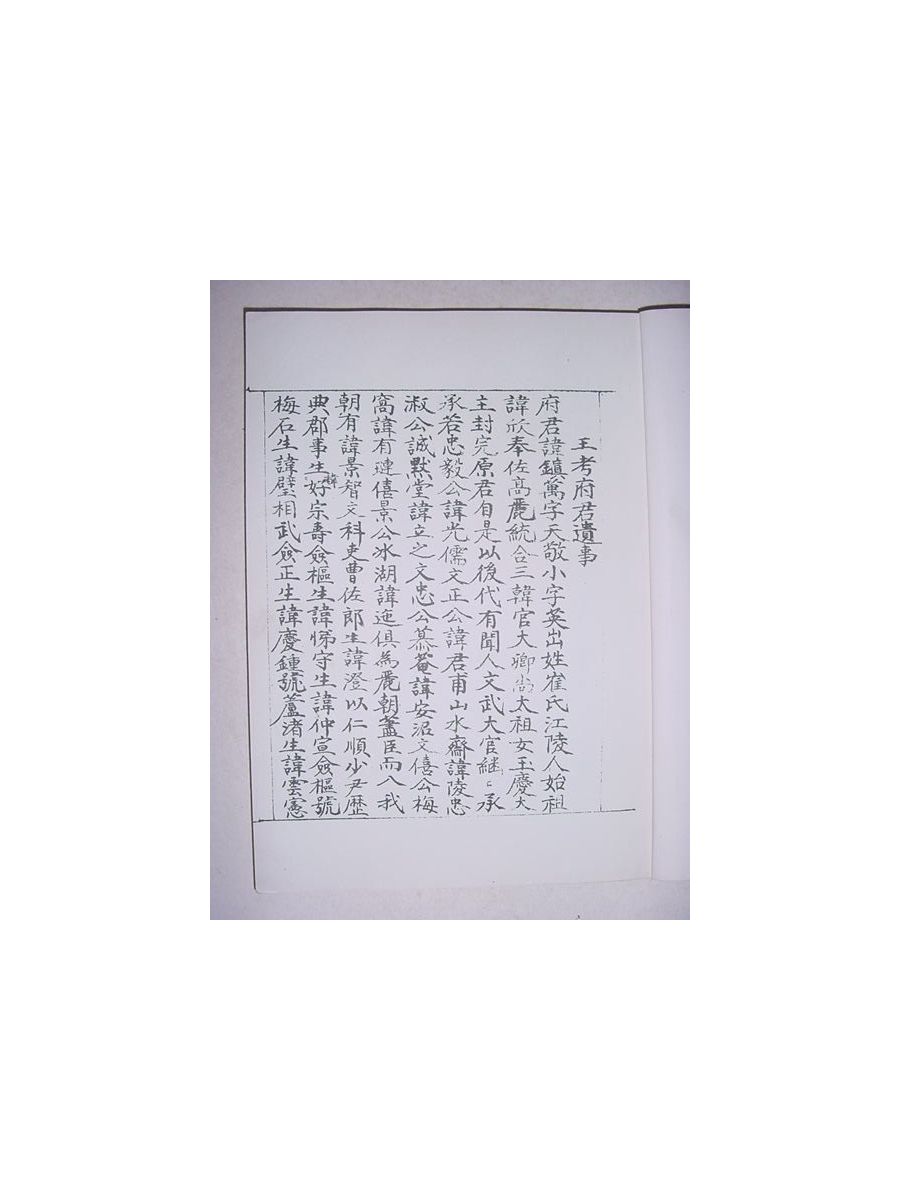 王考府君遺事
府君諱鎮萬字天敬小字英出姓崔氏江陵人始祖
諱欣奉佐高麗統合三韓官大卿尚太祖女王慶大
主封完原君自是以後代有聞人文武大官継〻承
承若忠毅公諱光儒文正公諱君甫山水齋諱陵忠
淑公誠默堂諱立之文忠公慕菴諱安沼文僖公梅
窩諱有璉僖景公氷湖諱迤俱為麗朝藎臣而入我
朝有諱景智文科吏曹佐郎生諱澄以仁順少尹歷
典郡事生諱好宗壽僉樞生諱悌守生諱仲宣僉樞號
梅石生諱壁相武僉正生諱慶鍾號蘆渚生諱雲憲